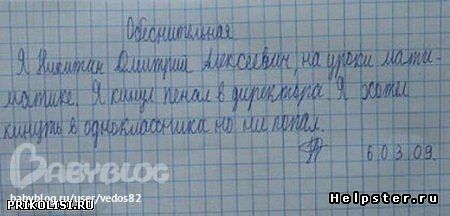 Обеснительная
Я Никитин Дмитрий Алексеевич, на уроки мати-
матике. Я кинул пенал в директора. Я хотел
кинуть в одноклассника но ни попал.
6.03.09.
BABYBLOG
babyblog.ru/user/vedos82
PRIKOLISI.RU
Helpster.ru